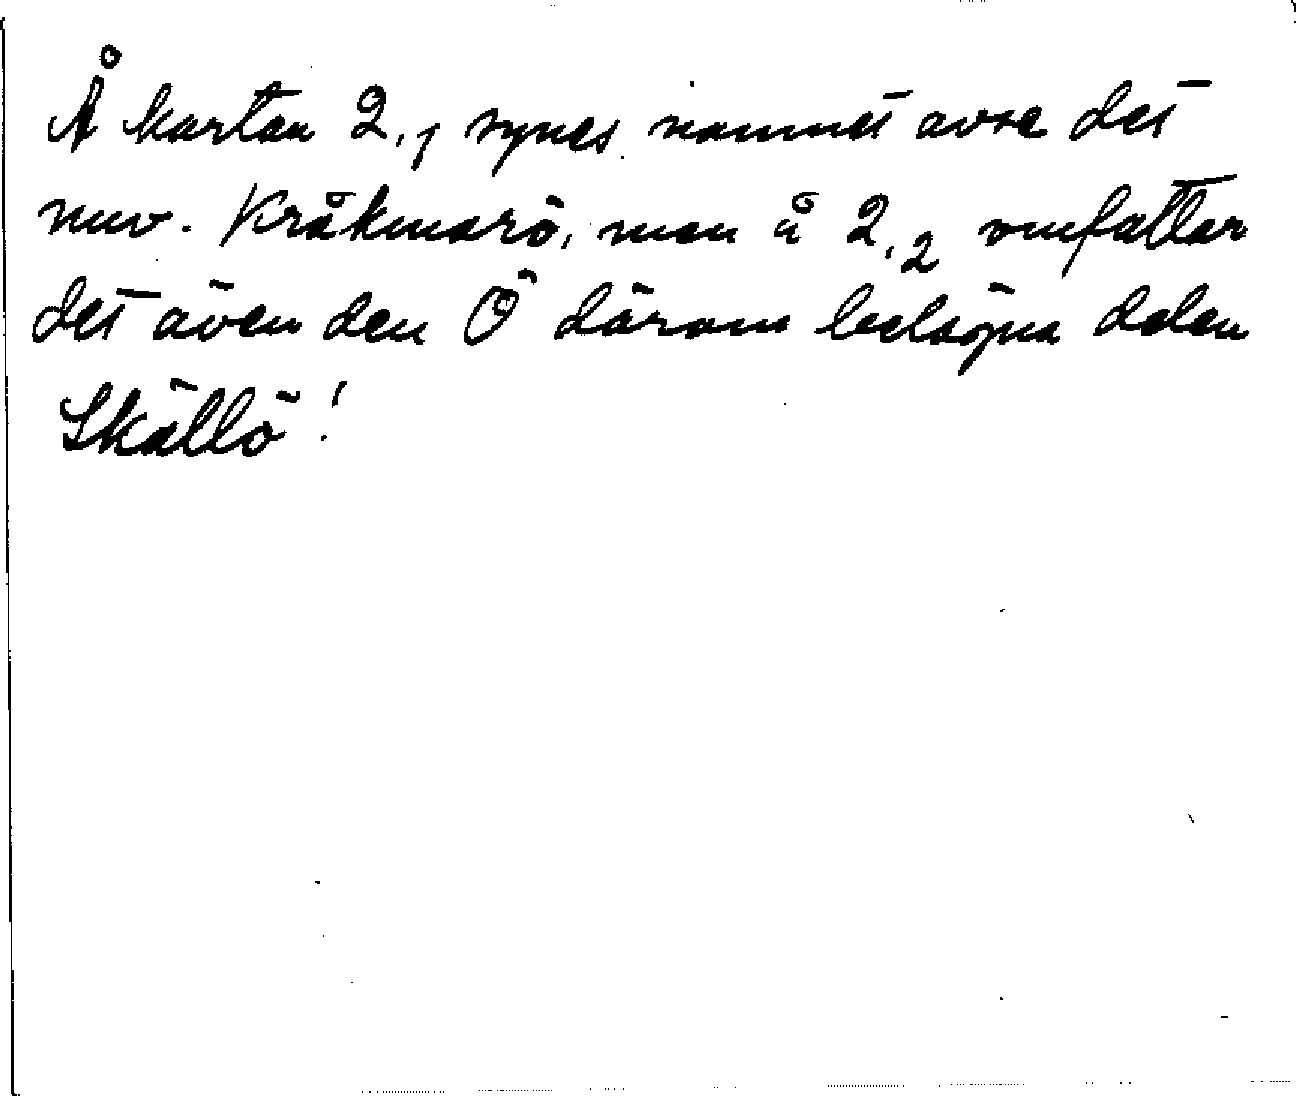 Å kartan 2,1 synes namnet avse det
nuv. Kråkmarö, men å 2,2 omfattar
det även den Ö därom belägna delen
Skällö!